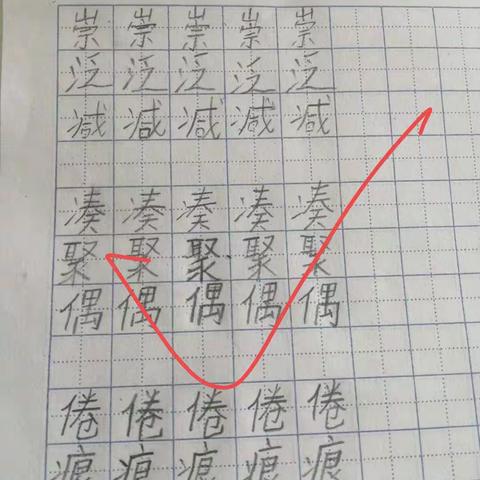 崇崇崇崇崇
泛泛泛泛泛
减减减减减
凑凑凑凑凑
聚聚聚聚聚
偶偶偶偶偶
倦倦倦倦倦
痕痕痕痕痕